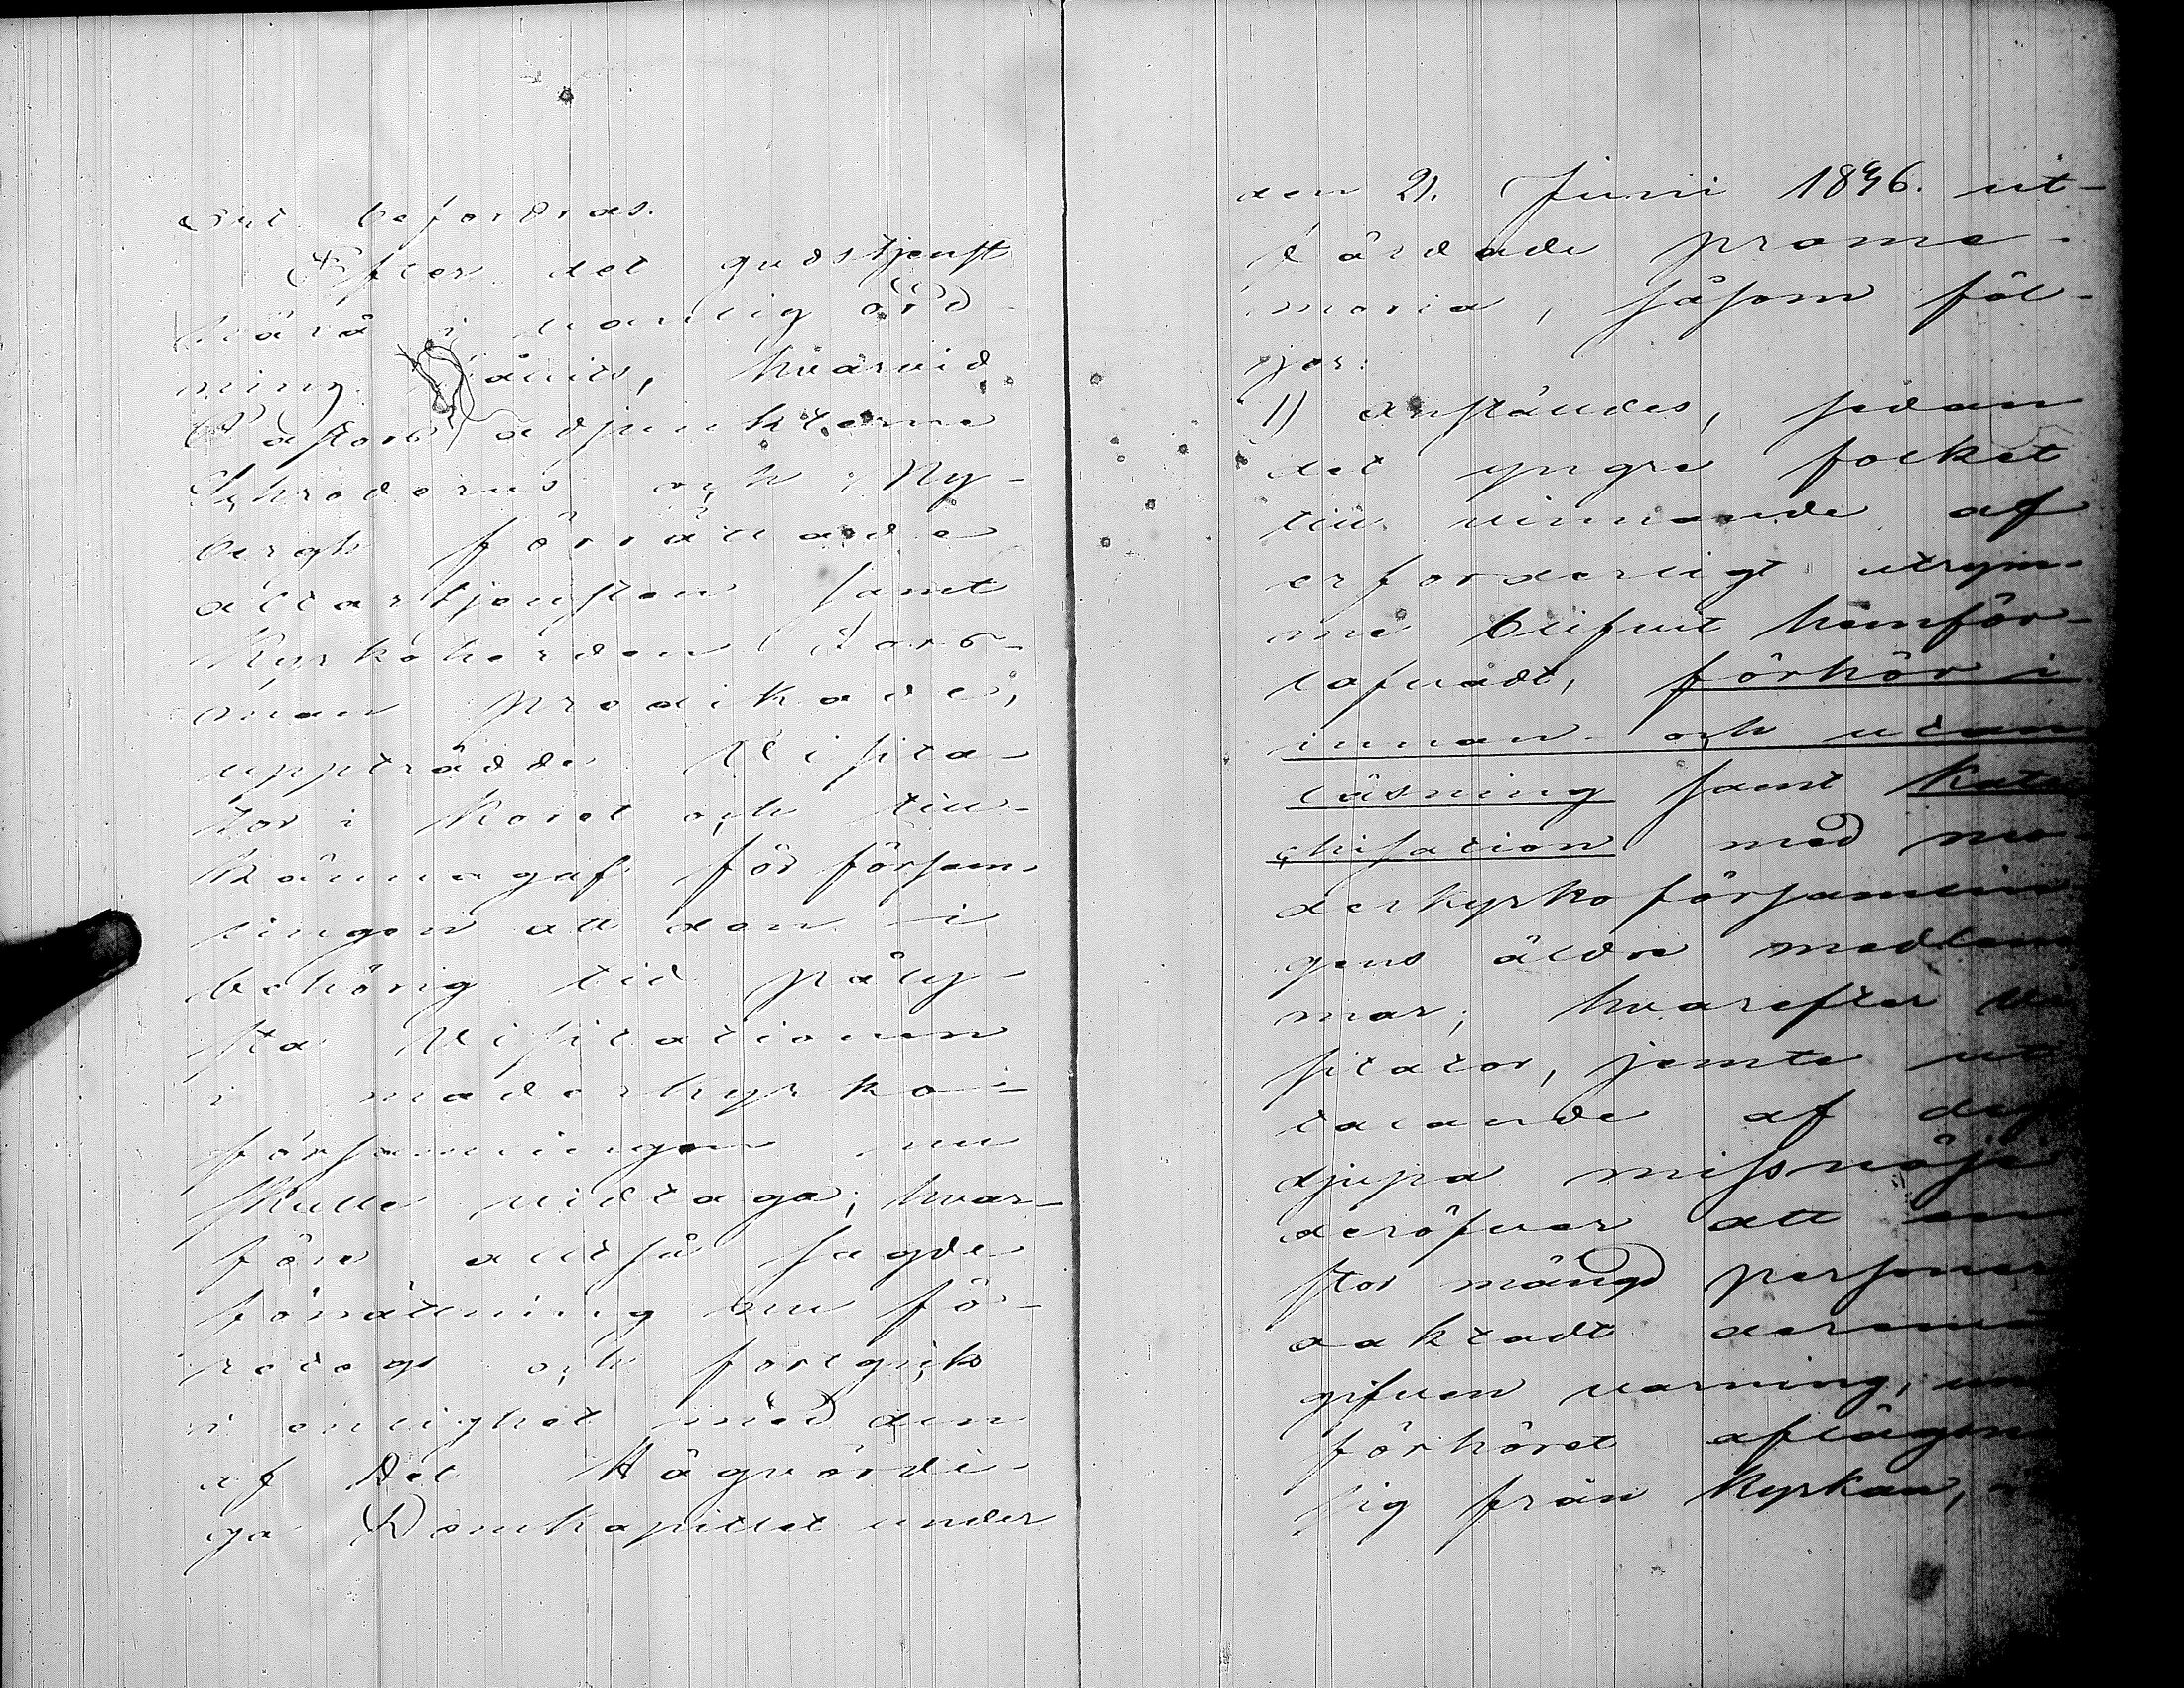 befordras.
Efter det gudstjenst
härå i vanlig ord-
ning hållits, hvarvid
Pastors adjunkterne
Schröderus och Ny-
bergh förrättade
altartjensten samt
Kyrkoherden Fors-
man predikade,
uppträdde Visita-
tor i koret och till-
kännagaf för försam-
lingen att den i
behörig tid påly-
sta Visitationen
i moderkyrko-
församlingen nu
skulle vidtaga; hvar-
före altså sagde
förrättning om fö-
retogs och foregick
i enlighet med den
af Det Högvördi-
ga Domkapitlet under
den 21. Juni 1846. ut-
färdade prome-
moria, såsom föl-
jer:
1) anstäldes, sedan
det yngre folket
till vinnande af
erforderligt utrym-
me blifvit hemför-
lofvadt, förhör i
innan- och utan
läsning samt kate
chisation med mo-
derkyrkoförsamlin
gens äldre medlem
mar; hvarefter Vi
sitator, jemte ut
talande af dess
djupa missnöje
deröfver att en
stor mängd personer
oaktadt deremot
gifven varning, un
förhöret aflägsna
sig från kyrkan,